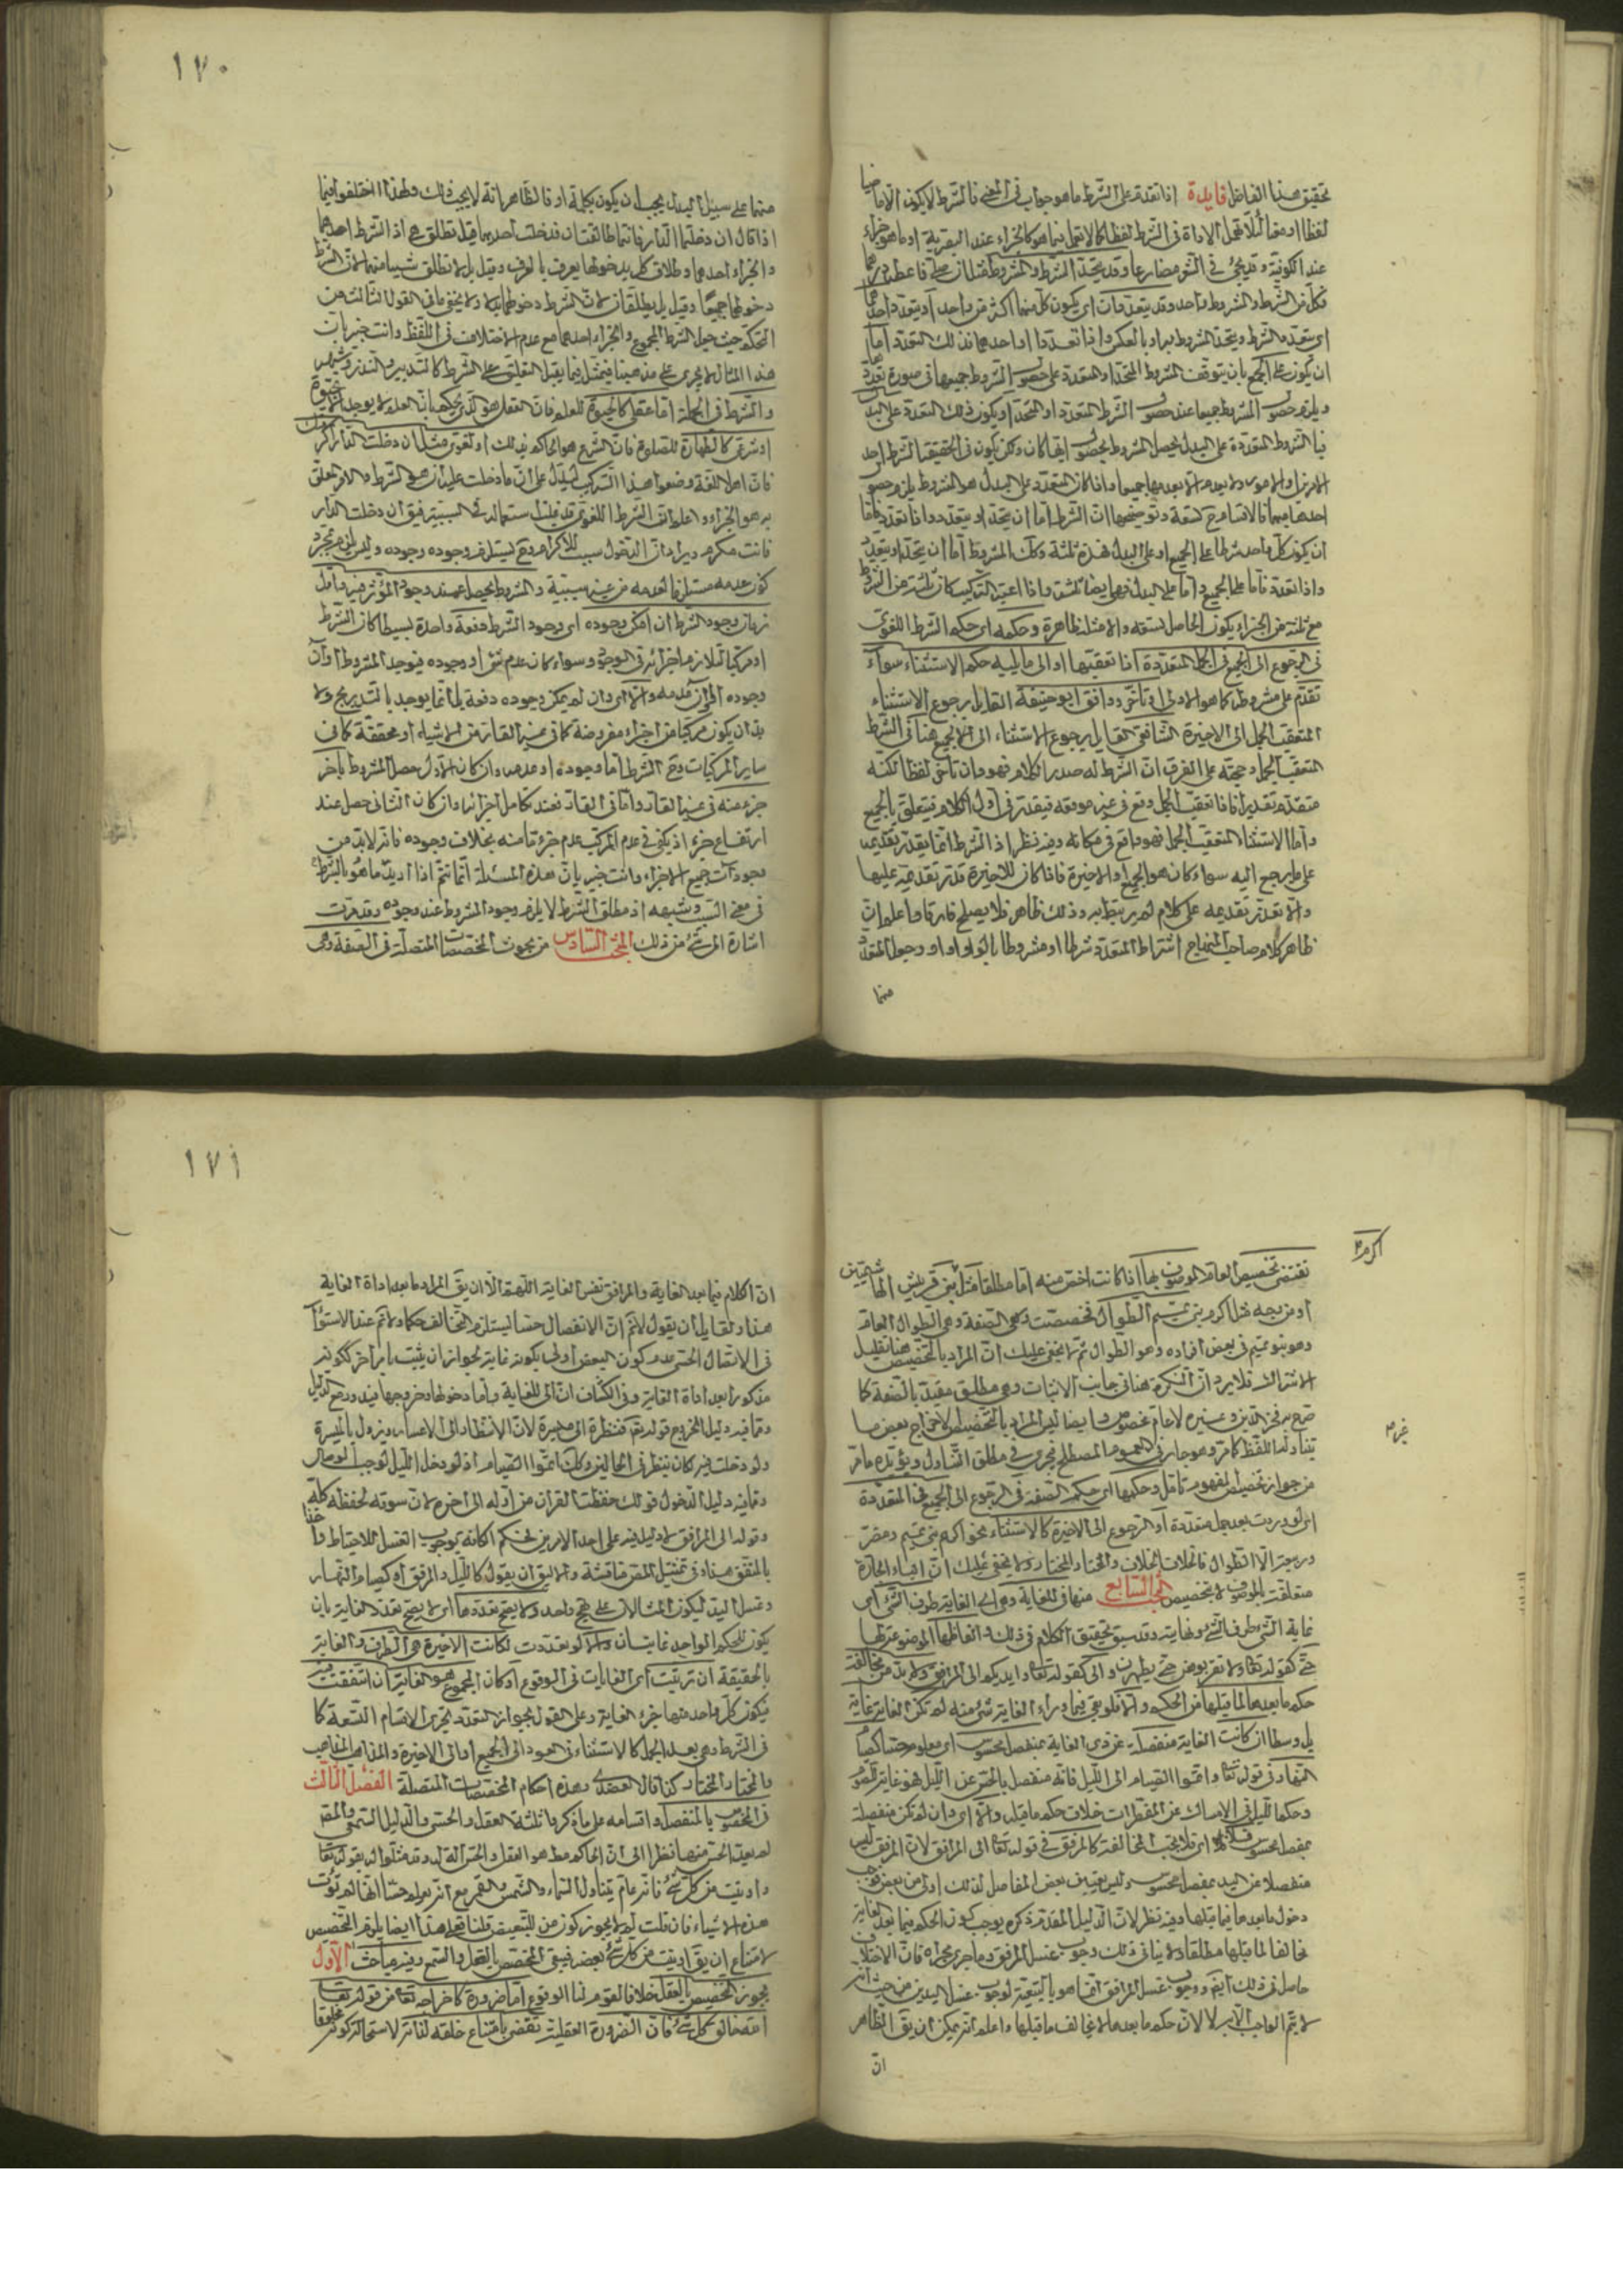 ١٧٠
تحقيق هذا الفاضل فايدة اذا تقدم على الشرط ما هو جواب في المعنى فالشرط لا يكون الا ماضيا
لفظا او معنا لئلا تعمل الاداة في الشرط لفظا كما لا تعمل فيما هو كالجزاء عند البصرية او ما هو جزاء
عند الكوفية وقد يجئ في الشعر مضارعا وقد يتحد الشرط والمشروط
فكل من الشرط والمشروط واحد وقد يتعددان اي يكون كل منهما اكثر من واحد او يتعدد احدهما
اي يتعدد الشرط ويتحد المشروط او بالعكس واذا تعددا او احدهما فذلك التعدد اما
ان يكون على الجمع بان يتوقف المشروط المتحد او المتعدد على حصول الشروط جميعها في صورة تعددها
ويلزم حصول المشروط جميعا عند حصول الشرط المتعدد او المتحد او يكون ذلك التعدد على البدل
فبالشروط المتعددة على البدل يحصل المشروط بحصول ايها كان ولكن يكون في الحقيقة الشرط احد
الامرين او الامور واذا كان التعدد على البدل هو المشروط يلزم حصول
احدهما مبهما فالاقسام ح تسعة وتوضيحها ان الشرط اما ان يتحد او يتعدد واذا تعدد فاما
ان يكون كل واحد شرطا على الجمع او على البدل فهذه ثلثة وكك المشروط اما ان يتحد او يتعدد
واذا تعدد فاما على الجميع واما على البدل فهي ايضا ثلثة واذا اعتبر التركيب كان ثلثة من الشروط
مع ثلثة من الجزاء يكون الحاصل تسعة والامثلة ظاهرة وحكمه اي حكم الشرط اللغوي
في الرجوع الى الجميع في الجمل المتعددة اذا تعقبها او الى ما يليه حكم الاستثناء سواء
تقدم على مشروطه كما هو الاولى او تاخر ووافق ابو حنيفة القايل برجوع الاستثناء
المتعقب الجمل الى الاخيرة الشافعي القايل برجوع الاستثناء الى الجميع هنا في الشرط
المتعقب الجمل وحجته على الفرق ان الشرط له صدر الكلام فهو وان تاخر لفظا لكنه
متقدم تقديرا فاذا تعقب الجمل وقع في غير موقعه فيقدر في اول الكلام فيتعلق بالجميع
واما الاستثناء المتعقب الجمل فهو واقع في مكانه وفيه نظر اذ الشرط انما يقدر تقديمه
على ما يرجع اليه سواء كان هو الجميع او الاخيرة فاذا كان للاخيرة قدر تقديمه عليها
والا تقدر تقديمه على كلام لم يرتبط به وذلك ظاهر فلا يصلح فارقا واعلم ان
ظاهر كلام صاحب المنهاج اشتراط المتعدد شرطا او مشروطا بالواو او او وحمل المتعدد
منهما
منهما على سبيل البدل يجب ان يكون بكلمة او فالظاهر انه لا يجب ذلك ولهذا اختلفوا فيما
اذا قال ان دخلتما الدار فانتما طالقتان فدخلت احديهما قيل تطلق هي اذ الشرط احدهما
والجزاء احدهما وطلاق كل بدخولها يعرف بالعرف وقيل بل لا تطلق شيء منهما لان الشرط
دخولهما جميعا وقيل بل يطلقان لان الشرط دخولهما بدلا ولا يخفى ما في القول الثالث من
التحكم حيث جعل الشرط المجموع والجزاء احدهما مع عدم الاختلاف في اللفظ وانت خبير بان
هذا المثال لا يجري على مذهبنا فيتمثل فيما يقبل التعليق على الشرط كالتدبير والنذر وشبههما
والشرط في الجملة اما عقلي كالحيوة للعلم فان العقل هو الذي يحكم بان العلم لا يوجد بدون حيوة
او شرعي كالطهارة للصلوة فان الشرع هو الحاكم بذلك او لغوي مثل ان دخلت الدار اكرمك
فان اهل اللغة وضعوا هذا التركيب ليدل على ان ما دخلت عليه ان هو الشرط والاخر المعلق
به هو الجزاء واعلم ان الشرط اللغوي قد غلب استعماله في السببية فيق ان دخلت الدار
فانت مكرم ويراد ان الدخول سبب للاكرام وح يستلزم وجوده وجوده وليس المراد مجرد
كون عدمه مستلزما لعدمه من غير سببية والمشروط يحصل عند وجود المؤثر فيه في اول
زمان وجود الشرط ان امكن وجوده اي وجود الشرط دفعة واحدة بسيطا كان الشرط
او مركبا تلازما جزائه في الوجود سواء كان عدم شئ او وجوده فيوجد المشروط اوان
وجوده الى ان عدمه والا اي وان لم يمكن وجوده دفعة بل انما يوجد بالتدريج ولا
بد ان يكون مركبا من اجزاء مفروضة كما في غير القارة من الاشياء او محققة كما في
ساير المركبات وح الشرط اما وجوده او عدمه وان كان الاول حصل المشروط باخر
جزء منه في غير القار واما في القار فعند تكامل اجزائه وان كان الثاني حصل عند
ارتفاع جزء اذ يكفي في عدم المركب عدم جزء ما منه بخلاف وجوده فانه لا بد من
وجودات جميع الاجزاء وانت خبير بان هذه المسئلة انما تتم اذا اريد ما هو بالشرط
في معنى السبب وشبهه اذ مطلق الشرط لا يلزم وجود المشروط عند وجوده وقد مرت
اشارة الى شئ من ذلك المبحث السادس من بحوث المخصصات المتصلة في الصفة وهي
١٧١
اكرم
تقتضي تخصيص العام الموصوف بها اذا كانت اخص منه اما مطلقا مثل بني قريش الهاشميين
او من وجه مثل اكرم بني تميم الطوال فخصصت هي الصفة وهي الطوال العام
وهو بنو تميم في بعض افراده وهو الطوال ثم لا يخفى عليك ان المراد بالتخصيص هنا تقليل
الاشتراك فلا يرد ان النكرة هنا في جانب الاثبات وهي مطلق مقيد بالصفة كما
صرح به فخر الدين وغيره لا عام مخصوص وايضا ليس المراد بالتخصيص الاخراج بعض ما
غيره
يتناوله اللفظ كما مر وهو جار في العموم المصطلح فيجري في مطلق التناول ويؤيده ما مر
من جواز تخصيص المفهوم تامل وحكمها اي حكم الصفة في الرجوع الى الجميع في المتعددة
اي لو وردت بعد جمل متعددة او الرجوع الى الاخيرة كالاستثناء نحو اكرم بني تميم ومضر
وربيعة الا الطوال فالخلاف الخلاف والمختار المختار ولا يخفى عليك ان الباء الجارة
متعلقة بالموصوف لا بتخصيص المبحث السابع منها في الغاية وهي اي الغاية طرف الشئ اي
غاية الشئ طرف الشئ ونهايته وقد سبق تحقيق الكلام في ذلك والفاظها الموضوعة لها
حتى كقوله تعا ولا تقربوهن حتى يطهرن والى كقوله تعا وايديكم الى المرافق ولا بد من مخالفة
حكم ما بعدها لما قبلها من الحكم والا فلو بقي فيما وراء الغاية شئ منه لم تكن الغاية غاية
بل وسطا ان كانت الغاية منفصلة عن ذي الغاية بمفصل محسوس اي معلوم حسا كما
النهار في قوله تعا واتموا الصيام الى الليل فانه منفصل بالحس عن الليل فهو غاية للصوم
وحكم الليل في الامساك عن المفطرات خلاف حكم ما قبله والا اي وان لم تكن منفصلة
بمفصل محسوس فلا اي فلا يجب المخالفة كالمرفق في قوله تعا الى المرافق لان المرفق ليس
منفصلا عن اليد بمفصل محسوس وليس تعيين بعض المفاصل لذلك اولى من بعض فوجب
دخول ما بعدها فيما قبلها وفيه نظر لان الدليل المقدم ذكره يوجب كون الحكم فيما بعد الغاية
مخالفا لما قبلها مطلقا ولا ينافي ذلك وجوب غسل المرفق وما جرى مجراه فان الاختلاف
حاصل في ذلك ايضا ووجوب غسل المرافق انما هو بالتبعية لوجوب غسل اليدين من حيث انه
لا يتم الواجب الا به لا لان حكم ما بعدها لا يخالف ما قبلها واعلم انه يمكن ان يق الظاهر
ان
ان الكلام فيما بعد الغاية والمرافق نفس الغاية اللهم الا ان يق المراد ما بعد اداة الغاية
هذا ولقايل ان يقول لا نم ان الانفصال حسا يستلزم التخالف حكما ولا نم عند الاستواء
في الاتصال الحسي عدم كون البعض اولى بكونه غاية لجواز ان يثبت بامر اخر ككونه
مذكورا بعد اداة الغاية وفي الكشاف ان الى للغاية واما دخولها وخروجها فيدور مع الدليل
ومما فيه دليل الخروج قوله تعا فنظرة الى ميسرة لان الانظار الى الاعسار ويزول بالميسرة
ولو دخلت فيه كان ينظر في الحالين وكك اتموا الصيام اذ لو دخل الليل لوجب الوصال
ومما فيه دليل الدخول قولك حفظت القران من اوله الى اخره لان سوقه لحفظه كله
وقوله الى المرافق لا دليل فيه على احد الامرين فحكم الكافة بوجوب الغسل للاحتياط واخذا
بالمتفق هذا وفي تمثيل المص مناقشة والاليق ان يقول كالليل والمرفق او كصيام النهار
وغسل اليد ليكون المثالان على نهج واحد ولا يصح تعددها اي لا يصح تعدد الغاية بان
يكون للحكم الواحد غايتان والا لو تعددت لكانت الاخيرة هي الطرف والغاية
بالحقيقة ان ترتبت اي الغايات في الوقوع او كان المجموع هو الغاية ان اتفقت فيه
فيكون كل واحد منها جزء الغاية وعلى القول بجواز التعدد يجري الاقسام التسعة كما
في الشرط وهي بعد الجمل كالاستثناء في العود الى الجميع او الى الاخيرة والمذاهب المذاهب
والمختار المختار كذا قال العضدي وهذه احكام المخصصات المتصلة الفصل الثالث
في المخصوص بالمنفصل واقسامه على ما ذكروا ثلثة العقل والحس والدليل السمعي والمص
لم يعد الحس منها نظرا الى ان الحاكم مط هو العقل والحس الة له وقد مثلوا له بقوله تعا
واوتيت من كل شئ فانه عام يتناول السماء والشمس والقمر مع انه يعلم حسا انها لم تؤت
هذه الاشياء فان قلت لم لا يجوز كون من للتبعيض قلنا فعلى هذا ايضا يلزم التخصيص
لامتناع ان يق اوتيت من كل شئ بعضه فبقي المخصص بالعقل والسمع وفيه مباحث الاول
يجوز التخصيص بالعقل خلافا لقوم لنا الوقوع اما ضرورة كاخراجه تعا من قوله تعا
الله خالق كل شئ فان الضرورة العقلية تقضي بامتناع خلقه لذاته لاستحالة كونه مخلوقا